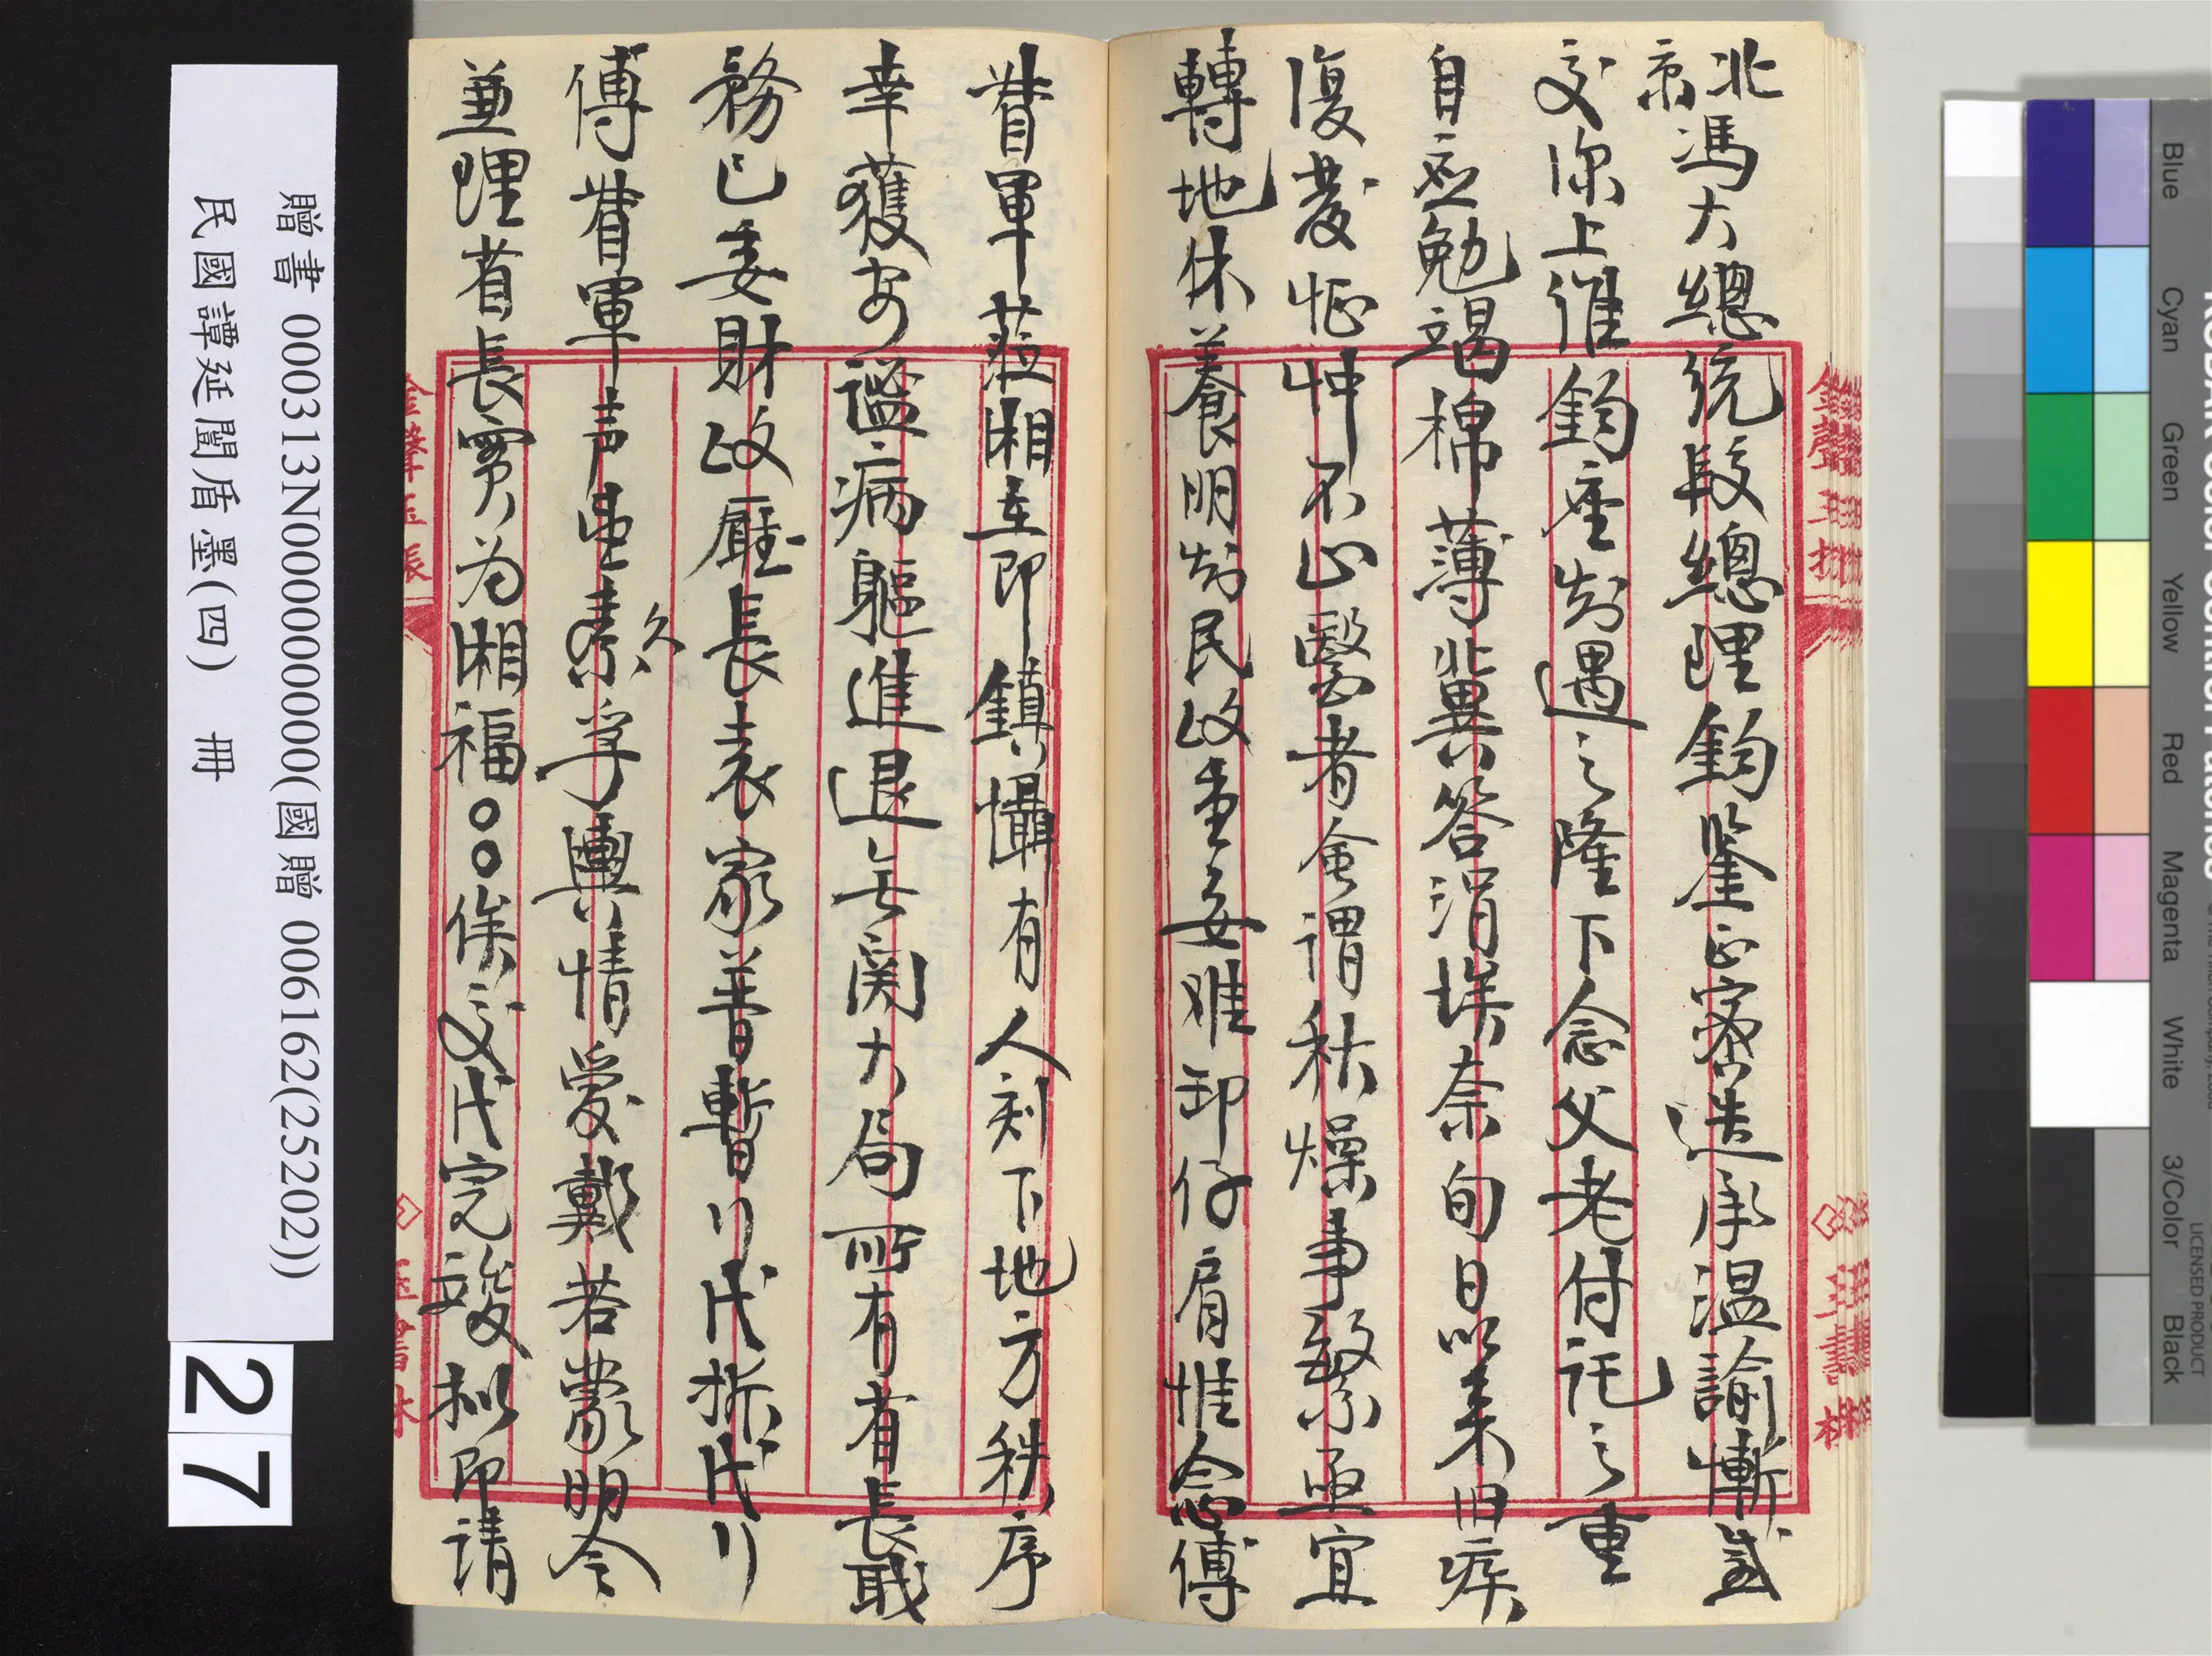 北京馮大總統段總理鈞鑒正密迭承温諭慚感
交深上維鈞座知遇之隆下念父老付託之重
自應勉竭棉薄冀答涓埃奈旬日以来旧疾
復發怔忡不止醫者僉謂秋燥事繁亟宜
轉地休養明知民政重要难卸仔肩惟念傅
督軍蒞湘立即鎮懾有人刻下地方秩序
幸獲安谧病軀進退无関大局所有省長職
務已委財政廳長袁家普暫行代拆代行
傅督軍声望素孚久輿情爱戴若蒙明令
兼理省長實为湘福○○俟交代完竣拟即請
贈書 000313N000000000(國贈 006162(25202))
民國譚延闓盾墨(四) 冊
27
Blue
Cyan
Green
Yellow
Red
Magenta
White
3/Color
Black
LICENSED PRODUCT